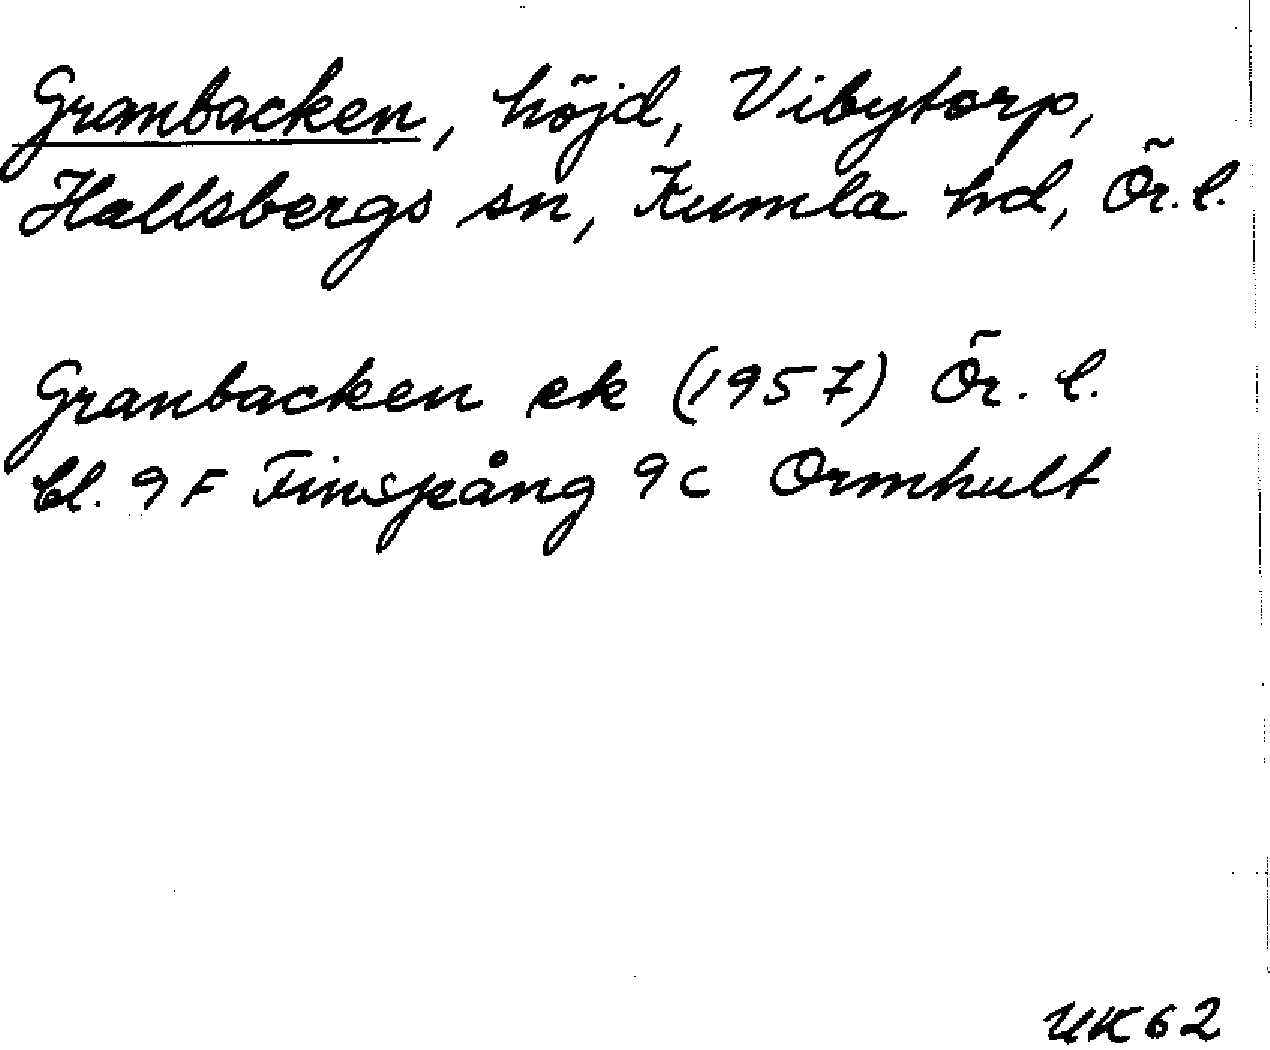 Granbacken, höjd, Vibytorp,
Hallsbergs sn, Kumla hd, Ör. l.
Granbacken ek (1957) Ör. l.
bl. 9F Finspång 9c Ormhult
UK62